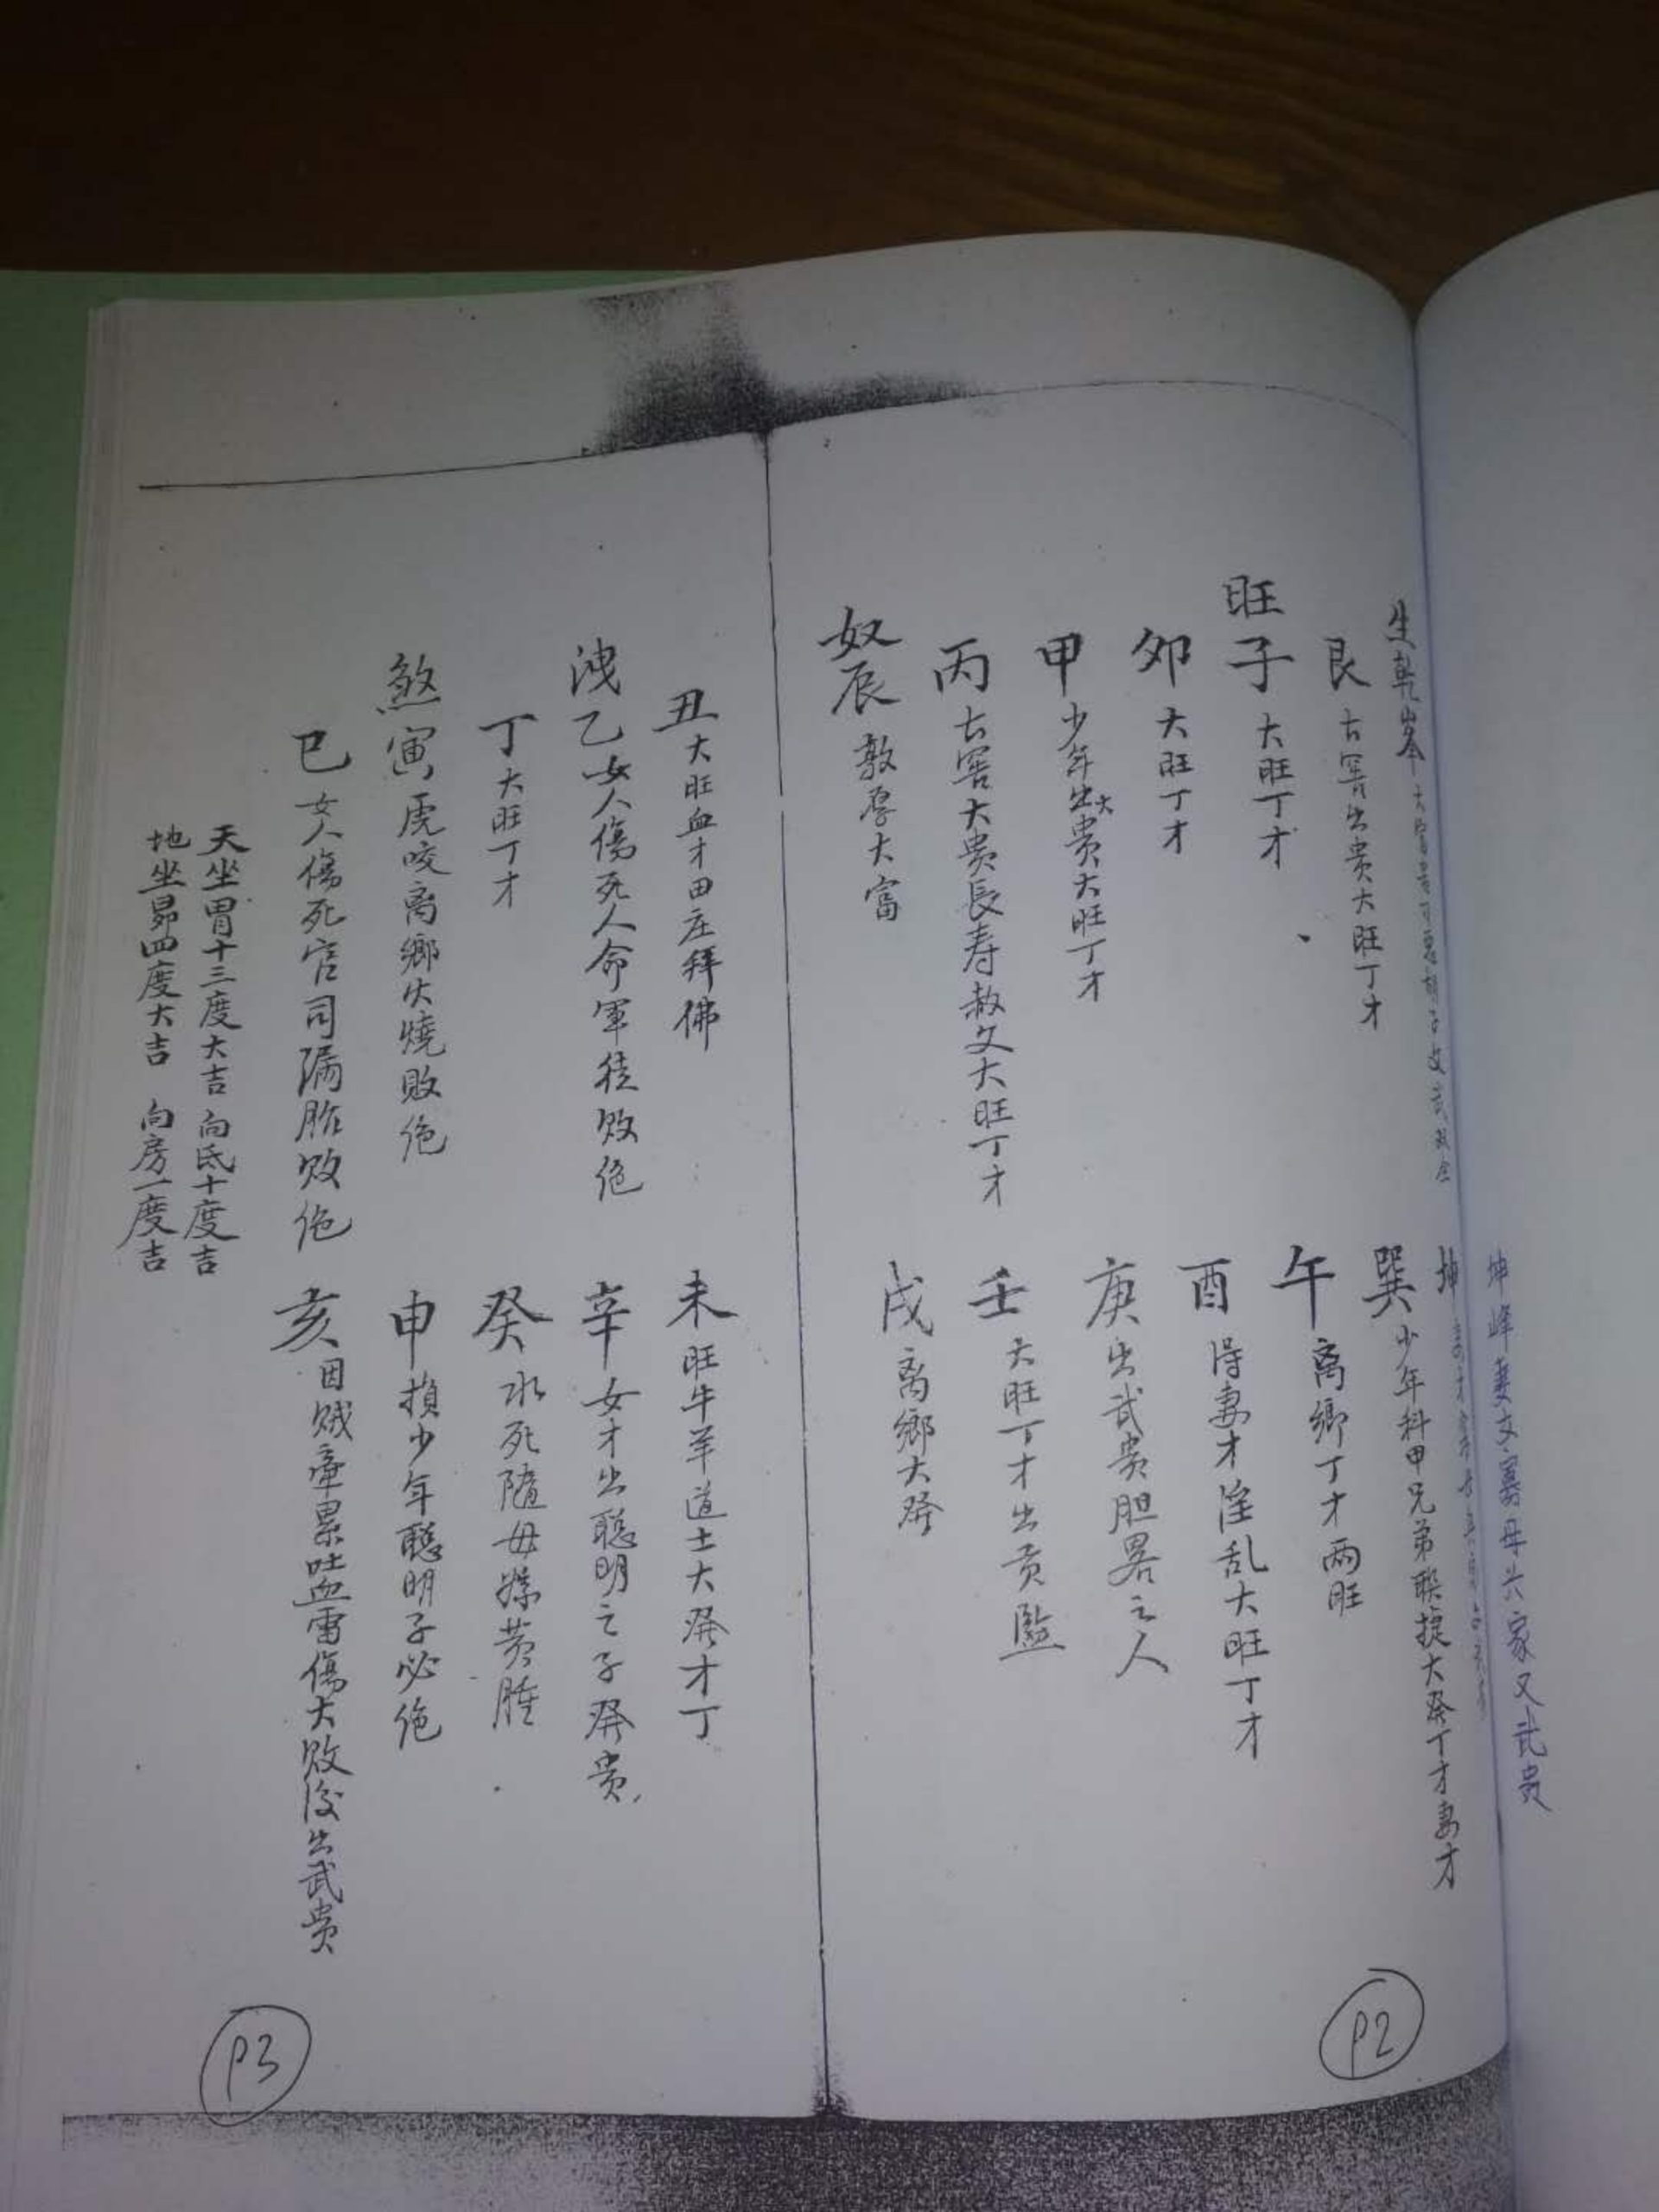 坤峰妻文寡母共家又武貴
生乾峯大富貴
坤
艮 古窖出貴大旺丁才
巽 少年科甲兄弟联捷大発丁才妻才
旺子 大旺丁才
午 离鄉丁才兩旺
卯 大旺丁才
酉 得妻才淫乱大旺丁才
甲 少年出大貴大旺丁才
庚 出武贵胆畧之人
丙 古窖大貴長寿赦文大旺丁才
壬 大旺丁才出贡監
奴辰 敦厚大富
戌 离鄉大発
P2
丑 大旺血才田庄拜佛
未 旺牛羊道士大発才丁
洩乙 女人傷死人命軍徒败绝
辛 女才出聪明之子発贵
丁 大旺丁才
癸 水死隨母嫁黄腫
煞寅 虎咬离鄉火燒败绝
申 損少年聰明子必绝
巳 女人傷死官司漏胎败绝
亥 因贼牽累吐血雷傷大败後出武贵
天坐胃十三度大吉 向氐十度吉
地坐昴四度大吉 向房一度吉
P3